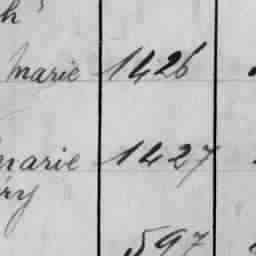 h
marie 1426
marie 1427
ry
597